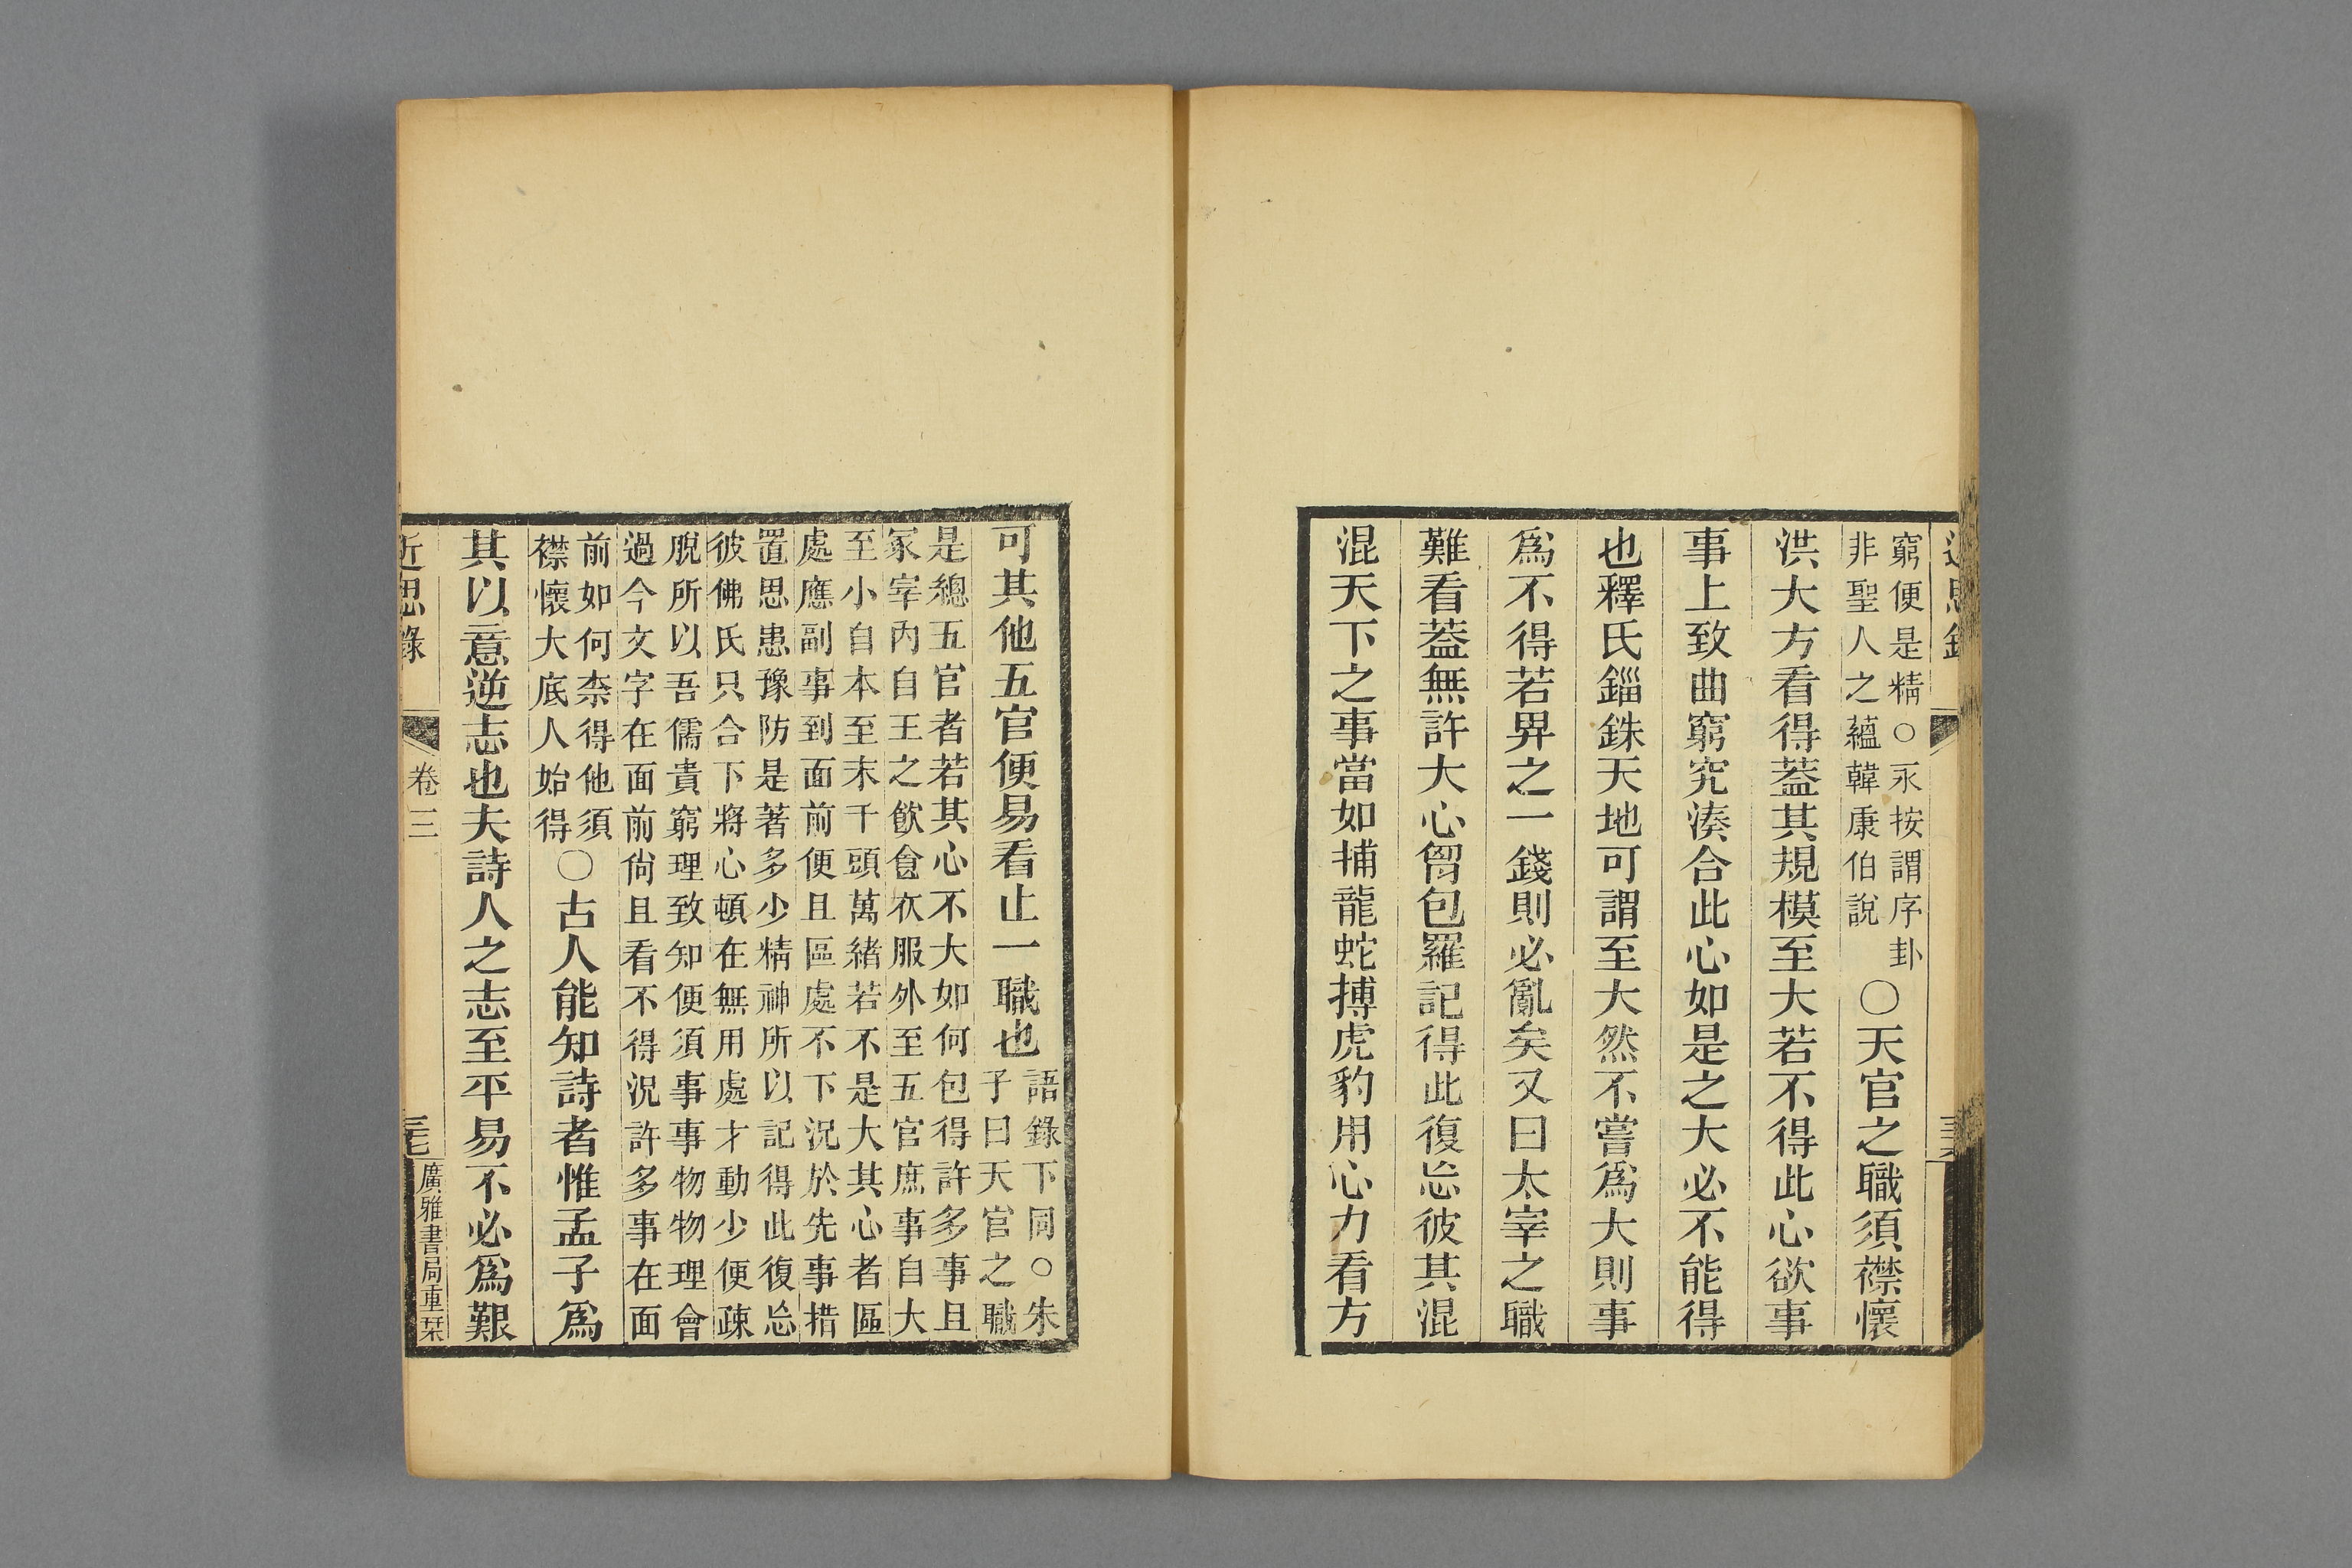 窮便是精○永按謂序卦
非聖人之蘊韓康伯說
○天官之職須襟懷
洪大方看得葢其規模至大若不得此心欲事
事上致曲窮究湊合此心如是之大必不能得
也釋氏錙銖天地可謂至大然不嘗爲大則事
爲不得若畀之一錢則必亂矣又曰太宰之職
難看葢無許大心胷包羅記得此復忘彼其混
混天下之事當如捕龍蛇搏虎豹用心力看方
可其他五官便易看止一職也
語錄下同○朱
子曰天官之職
是總五官者若其心不大如何包得許多事且
冢宰內自王之飮食衣服外至五官庶事自大
至小自本至末千頭萬緒若不是大其心者區
處應副事到面前便且區處不下況於先事措
置思患豫防是著多少精神所以記得此復忘
彼佛氏只合下將心頓在無用處才動少便疎
脫所以吾儒貴窮理致知便須事事物物理會
過今文字在面前尙且看不得況許多事在面
前如何柰得他須
襟懷大底人始得
○古人能知詩者惟孟子爲
其以意逆志也夫詩人之志至平易不必爲艱
近思錄
卷三
廣雅書局重栞